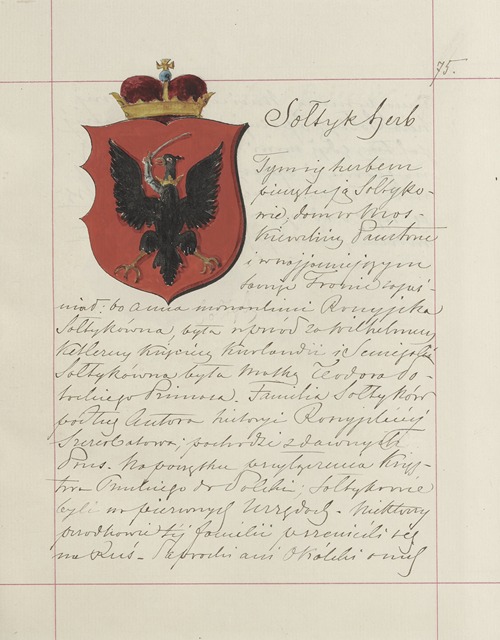 75.
Sołtyk herb
Tym się herbem
pieczętują Sołtyko-
wie, dom w Mos-
kiewskim Państwie
i w najjaśniejszym
tamże Tronie
niad: bo Anna Rossyjska
Sołtykowna była wprzód za Wilhelmem
Kettlerem Księciem Kurlandii i Semigalii
Sołtykówna była Matką Teodora Po
tockiego Prymasa. Familia Sołtyków
podług Autora historyi Rossyjskiej
Szczerbatowa, pochodzi z dawnych
Prus. Na początku przyłączenia Księs-
twa Pruskiego do Polski, Sołtykowie
byli w pierwszych Urzędach. Niektórzy
przodkowie tej familii przenieśli się
na Ruś. Paprocki ani Okólski o nich